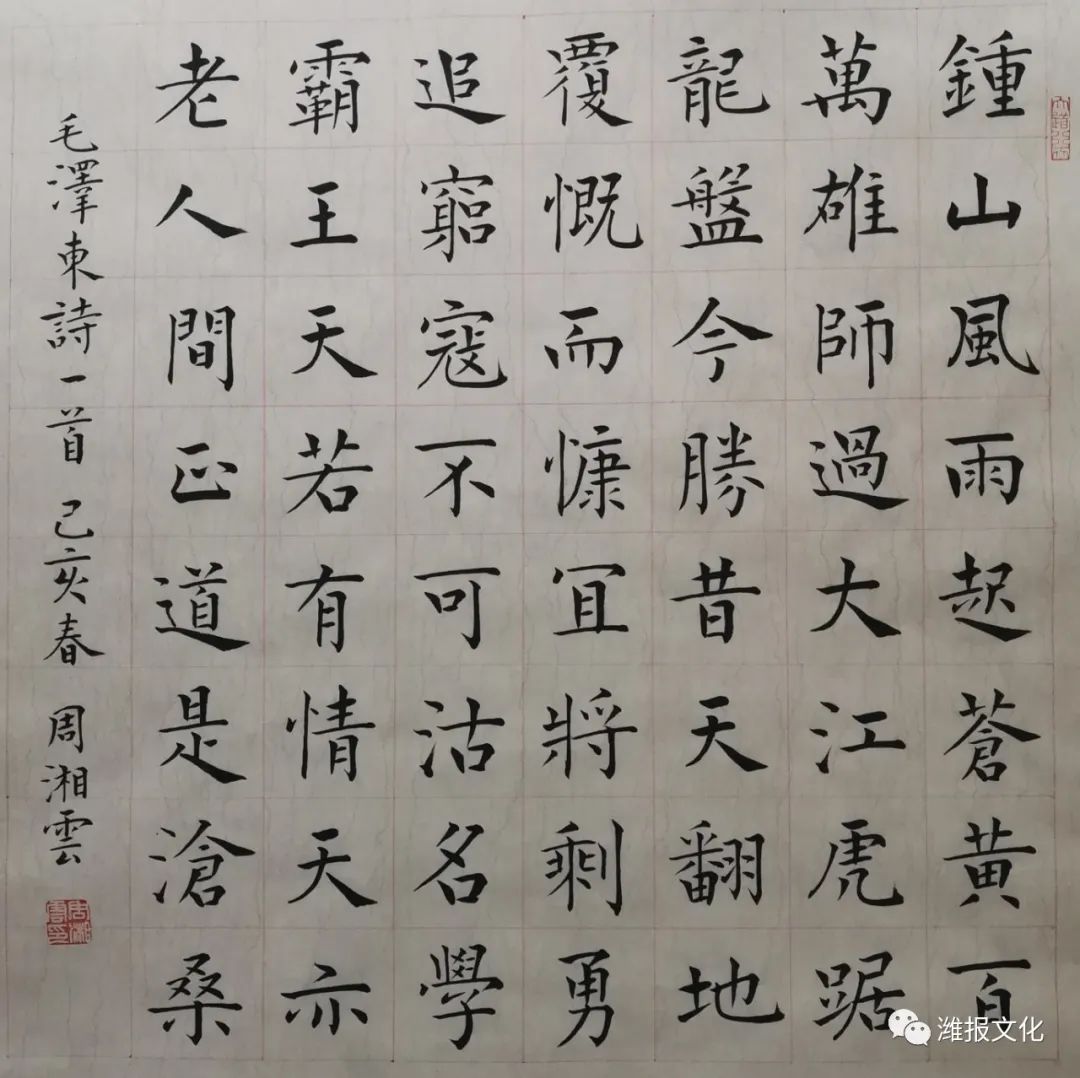 鍾山風雨起蒼黃百
萬雄師過大江虎踞
龍盤今勝昔天翻地
覆慨而慷宜將剩勇
追窮寇不可沽名學
霸王天若有情天亦
老人間正道是滄桑
毛澤東詩一首 己亥春 周湘雲
周湘雲印
潍报文化